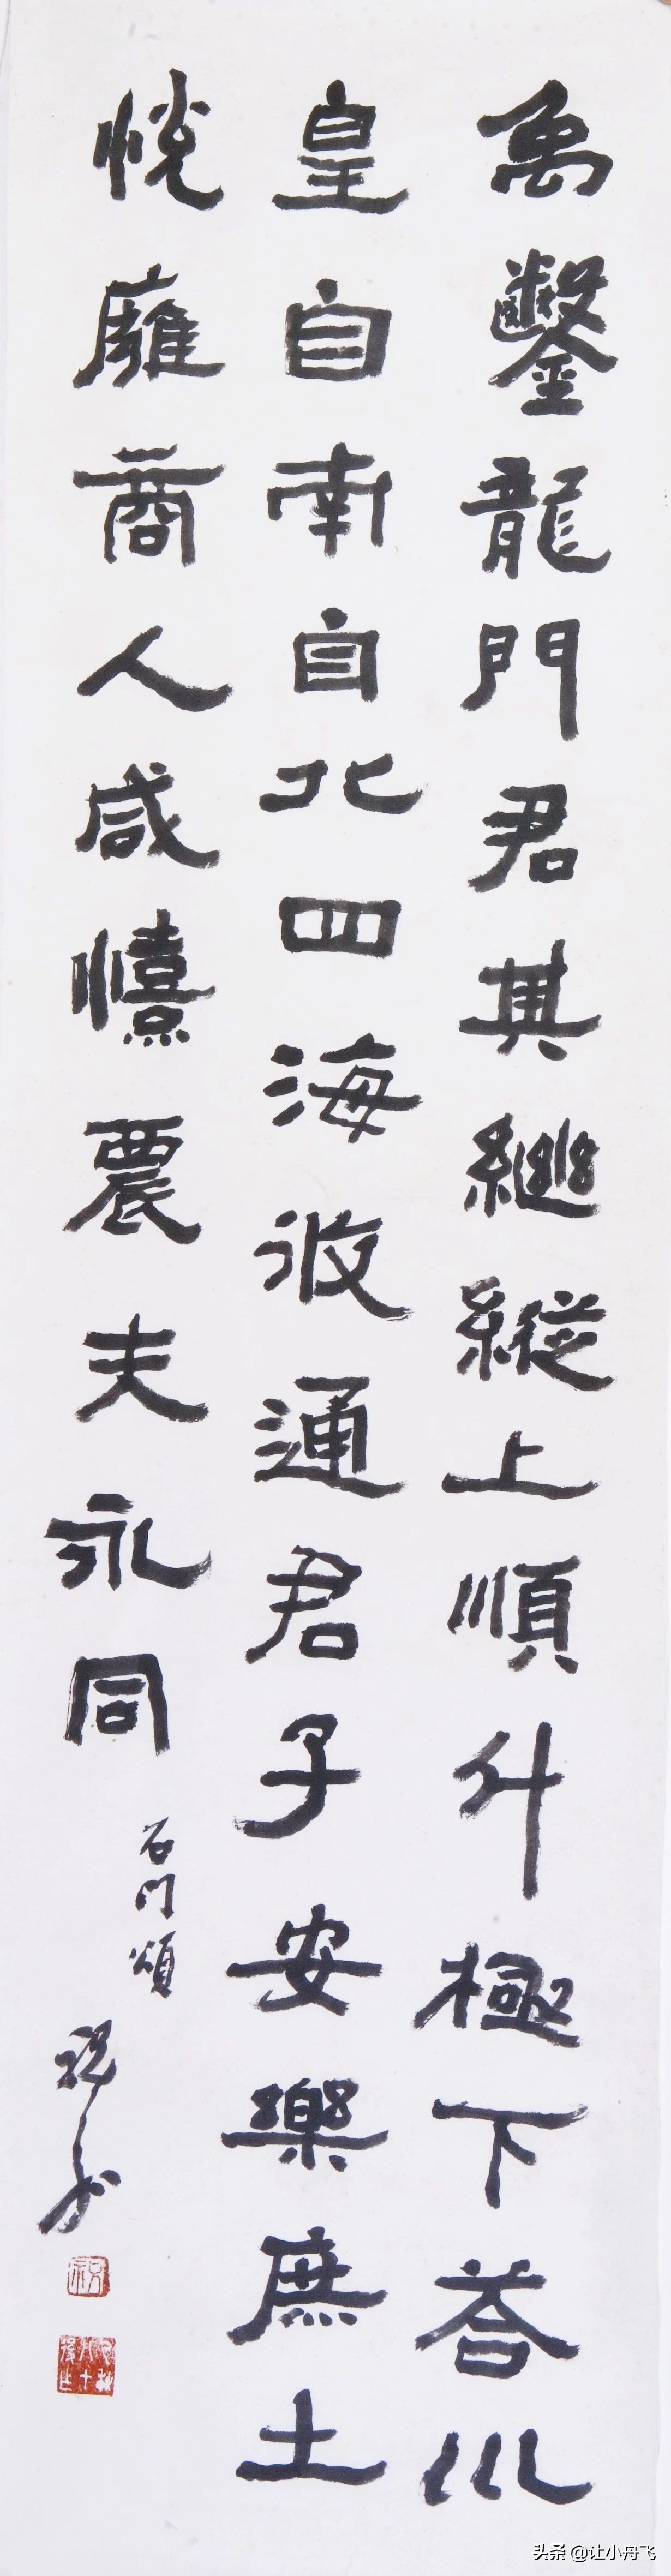 禹鑿龍門君其繼縱上順斗極下荅巛
皇自南自北四海攸通君子安樂庶土
悅雍商人咸憘農夫永同
石門頌
頭条 @让小舟飞